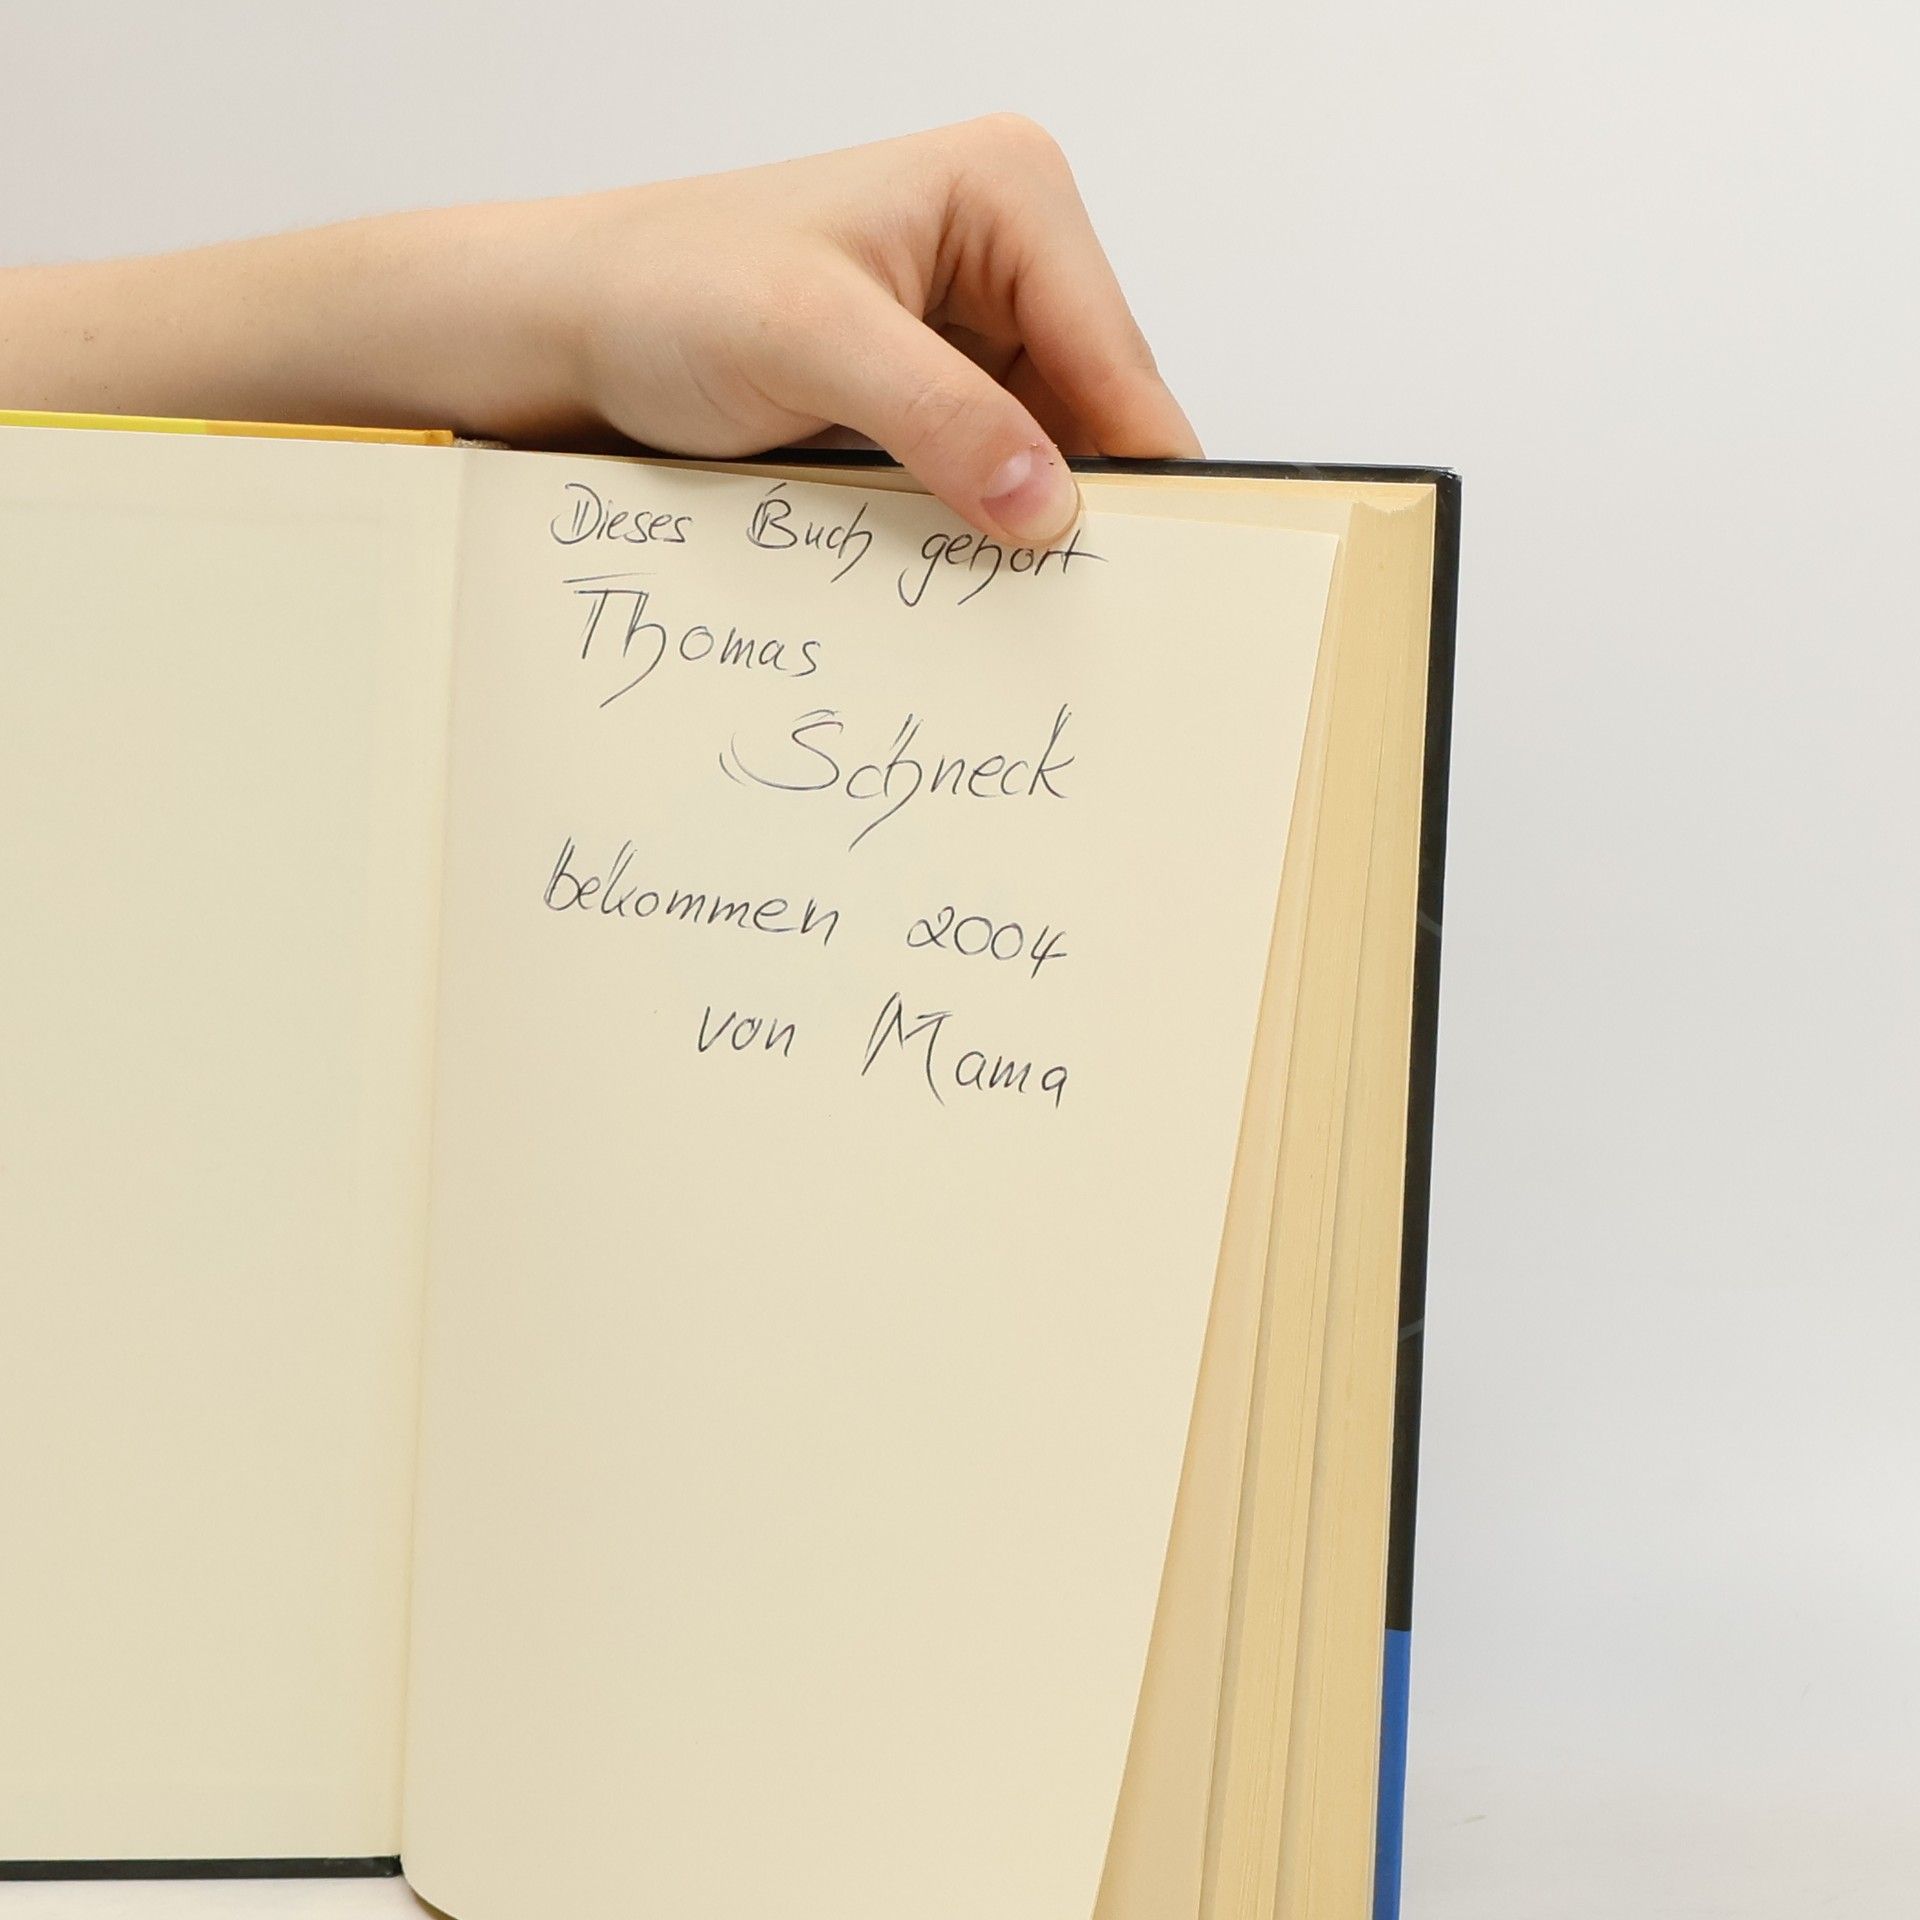 Dieses Buch gehört
Thomas
Schneck
bekommen 2004
von Mama